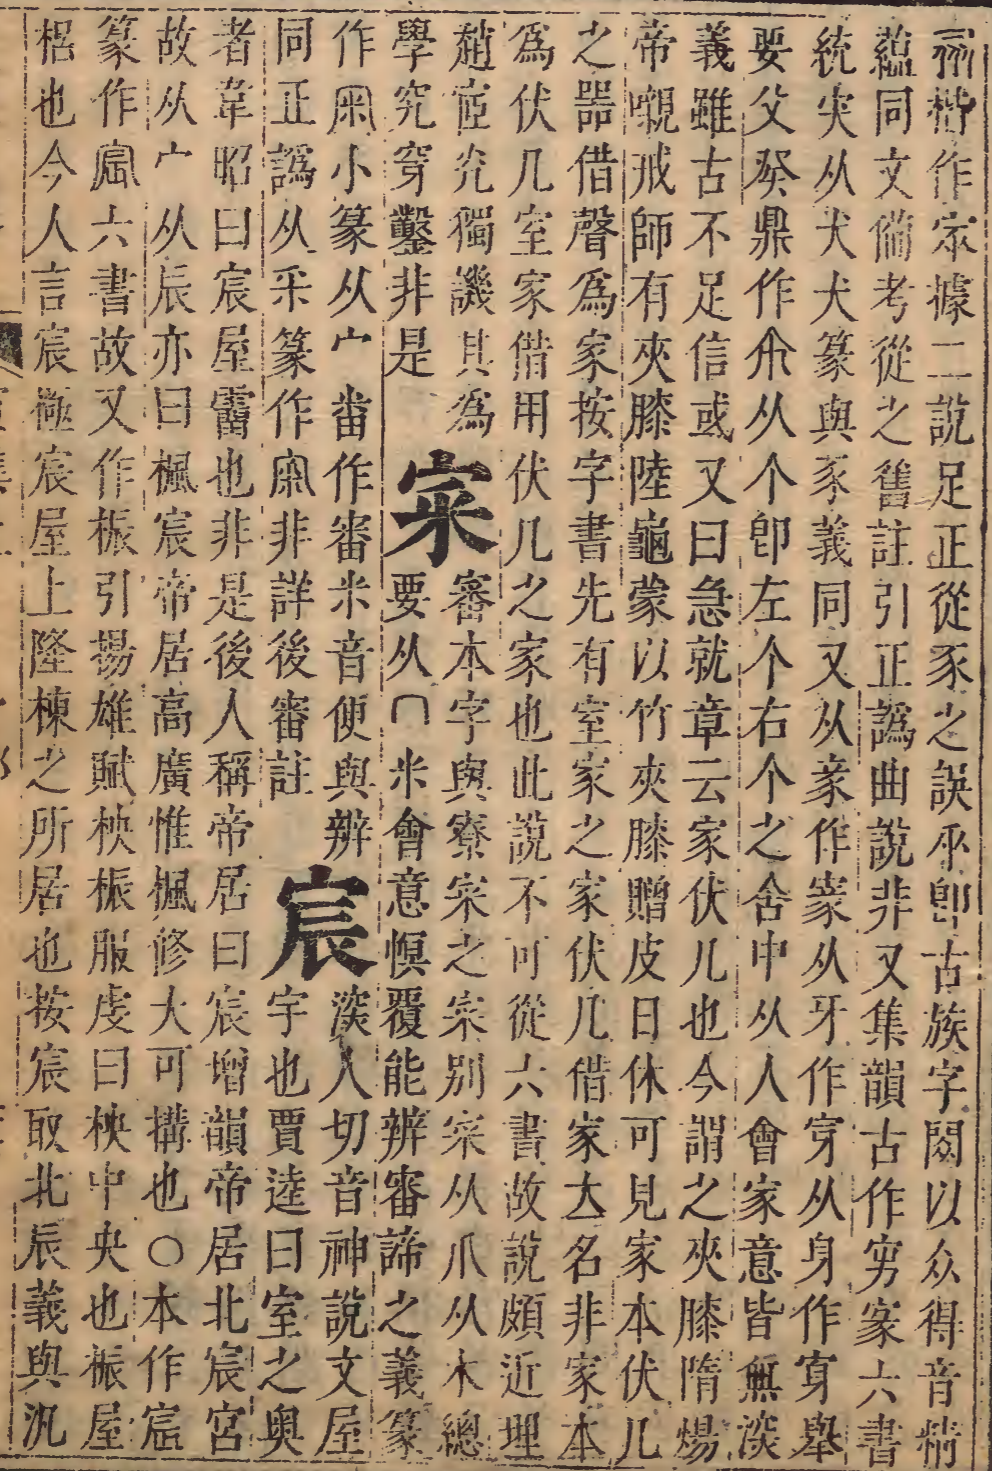 楷作家據二說足正從豕之誤卽古族字以众得音精
蘊同文備考從之舊註引正譌曲說非又集韻古作篆六書
統宊从犬犬篆與豕義同又从豙作从牙作穿从身作䆟舉
要父癸鼎作从个卽左个右个之舍中从人會家意皆無深
義雖古不足信或又曰急就章云家伏几也今謂之夾膝隋煬
帝嚫戒師有夾膝陸龜蒙以竹夾膝贈皮日休可見家本伏几
之器借聲爲家按字書先有室家之家伏几借家大名非家本
爲伏几室家借用伏几之家也此說不可從六書故說頗近理
趙宧光獨譏其爲
學究穿鑿非是
宷
審本字與寮宷之宷別宷从爪从木總
要从冂釆會意愼覆能辨審諦之義篆
作小篆从宀番作審釆音便與辨
同正譌从釆篆作非詳後審註
宸
深人切音神說文屋
宇也賈逵曰室之奥
者韋昭曰宸屋霤也非是後人稱帝居曰宸增韻帝居北宸宮
故从宀从辰亦曰楓宸帝居高廣惟楓修大可搆也○本作
篆作六書故又作桭引揚雄賦柍桭服虔曰柍中央也桭屋
梠也今人言宸極宸屋上隆棟之所居也按宸取北辰義與汎